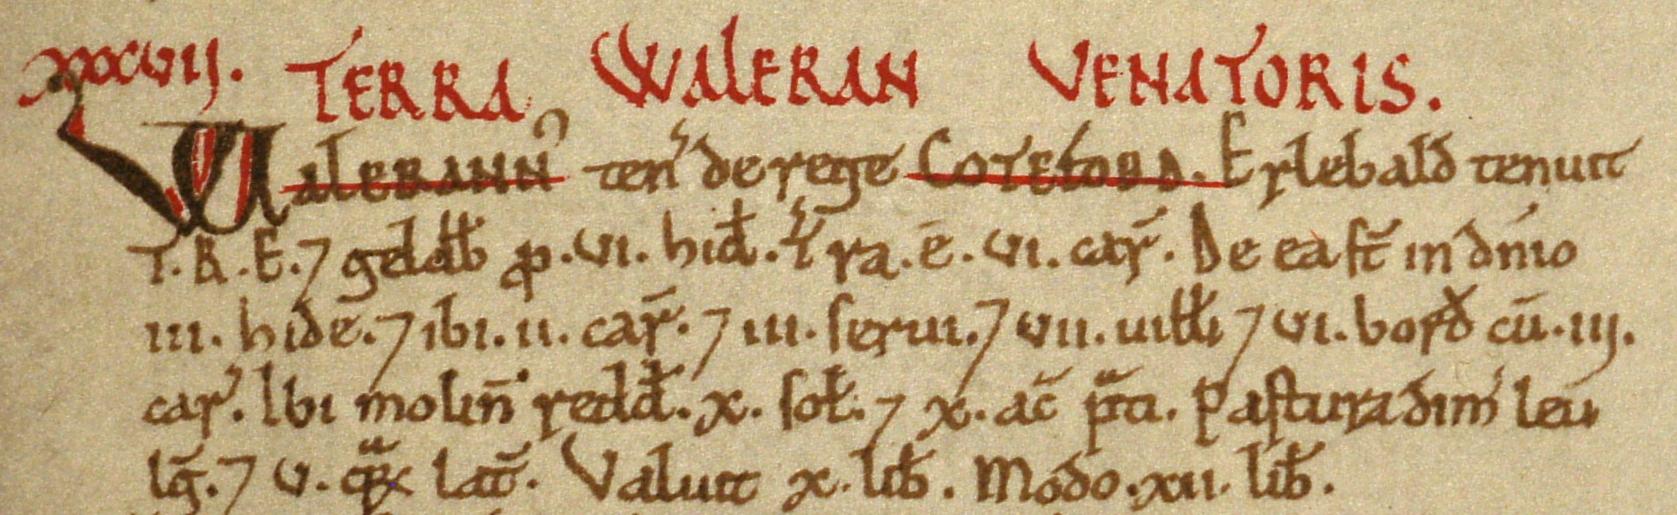 XXXVII. TERRA WALERAN VENATORIS.
WALERANN' teñ de rege COTEFORD. Erlebald tenuit
T.R.E. ⁊ geldab̄ ꝓ .vi. hid̄. T'ra .ē. vi. car̄. De ea st̄ in dn̄io
iii. hidę. ⁊ ibi .ii. car̄. ⁊ iii. serui. ⁊ vii. uilƚi ⁊ vi. bord̄ cū .iij.
car̄. Ibi molin̄ redd̄. x. soƚ. ⁊ x. ac̄ p̃ti. Pastura dim̄ leu
lḡ. ⁊ v. qͣꝝ lat̄. Valuit x. lib̄. Modo .xii. lib̄.